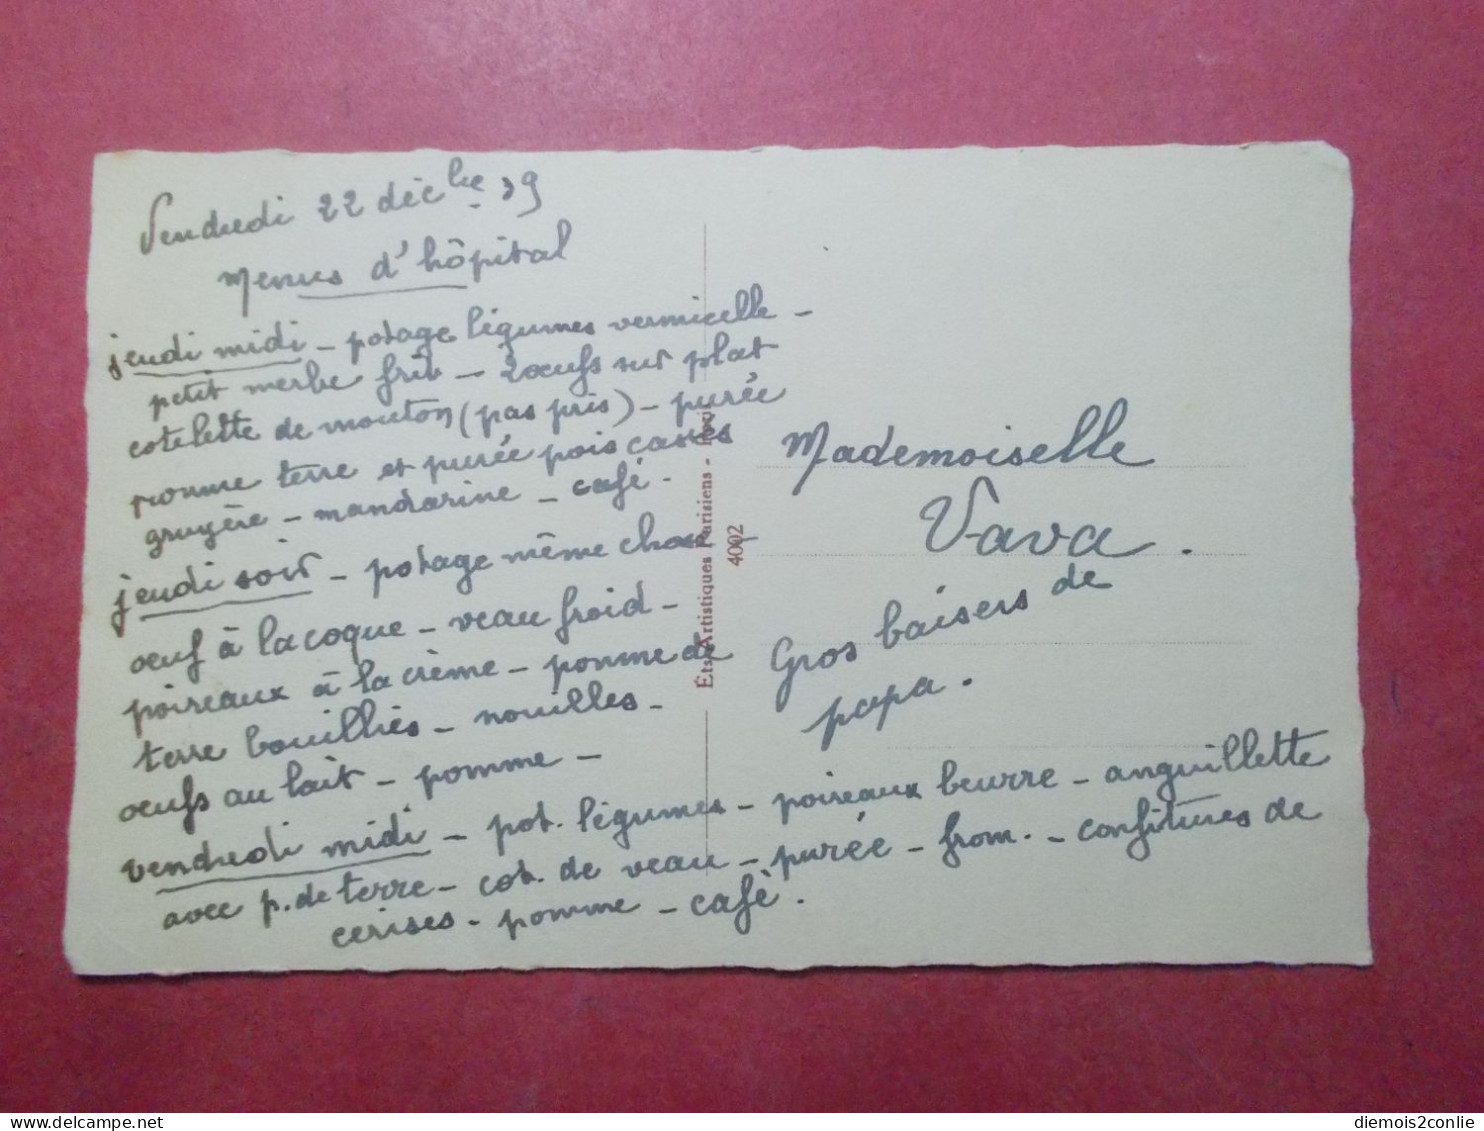 Vendredi 22 décbre 39
Menus d'hôpital
jeudi midi - potage légumes vermicelle -
petit merbe frit - 2 oeufs sur plat
cotelette de mouton (pas pris) - purée
pomme terre et purée pois cassés
gruyère - mandarine - café.
jeudi soir - potage même chose -
oeuf à la coque - veau froid -
poireaux à la crème - pomme de
terre bouillies - nouilles -
oeufs au lait - pomme -
vendredi midi - pot. légumes - poireaux beurre - anguillette
avec p. de terre - cot. de veau - purée - from. - confitures de
cerises - pomme - café.
Éts. Artistiques Parisiens - Paris
4002
Mademoiselle
Vava.
Gros baisers de
papa.
diemois2conlie